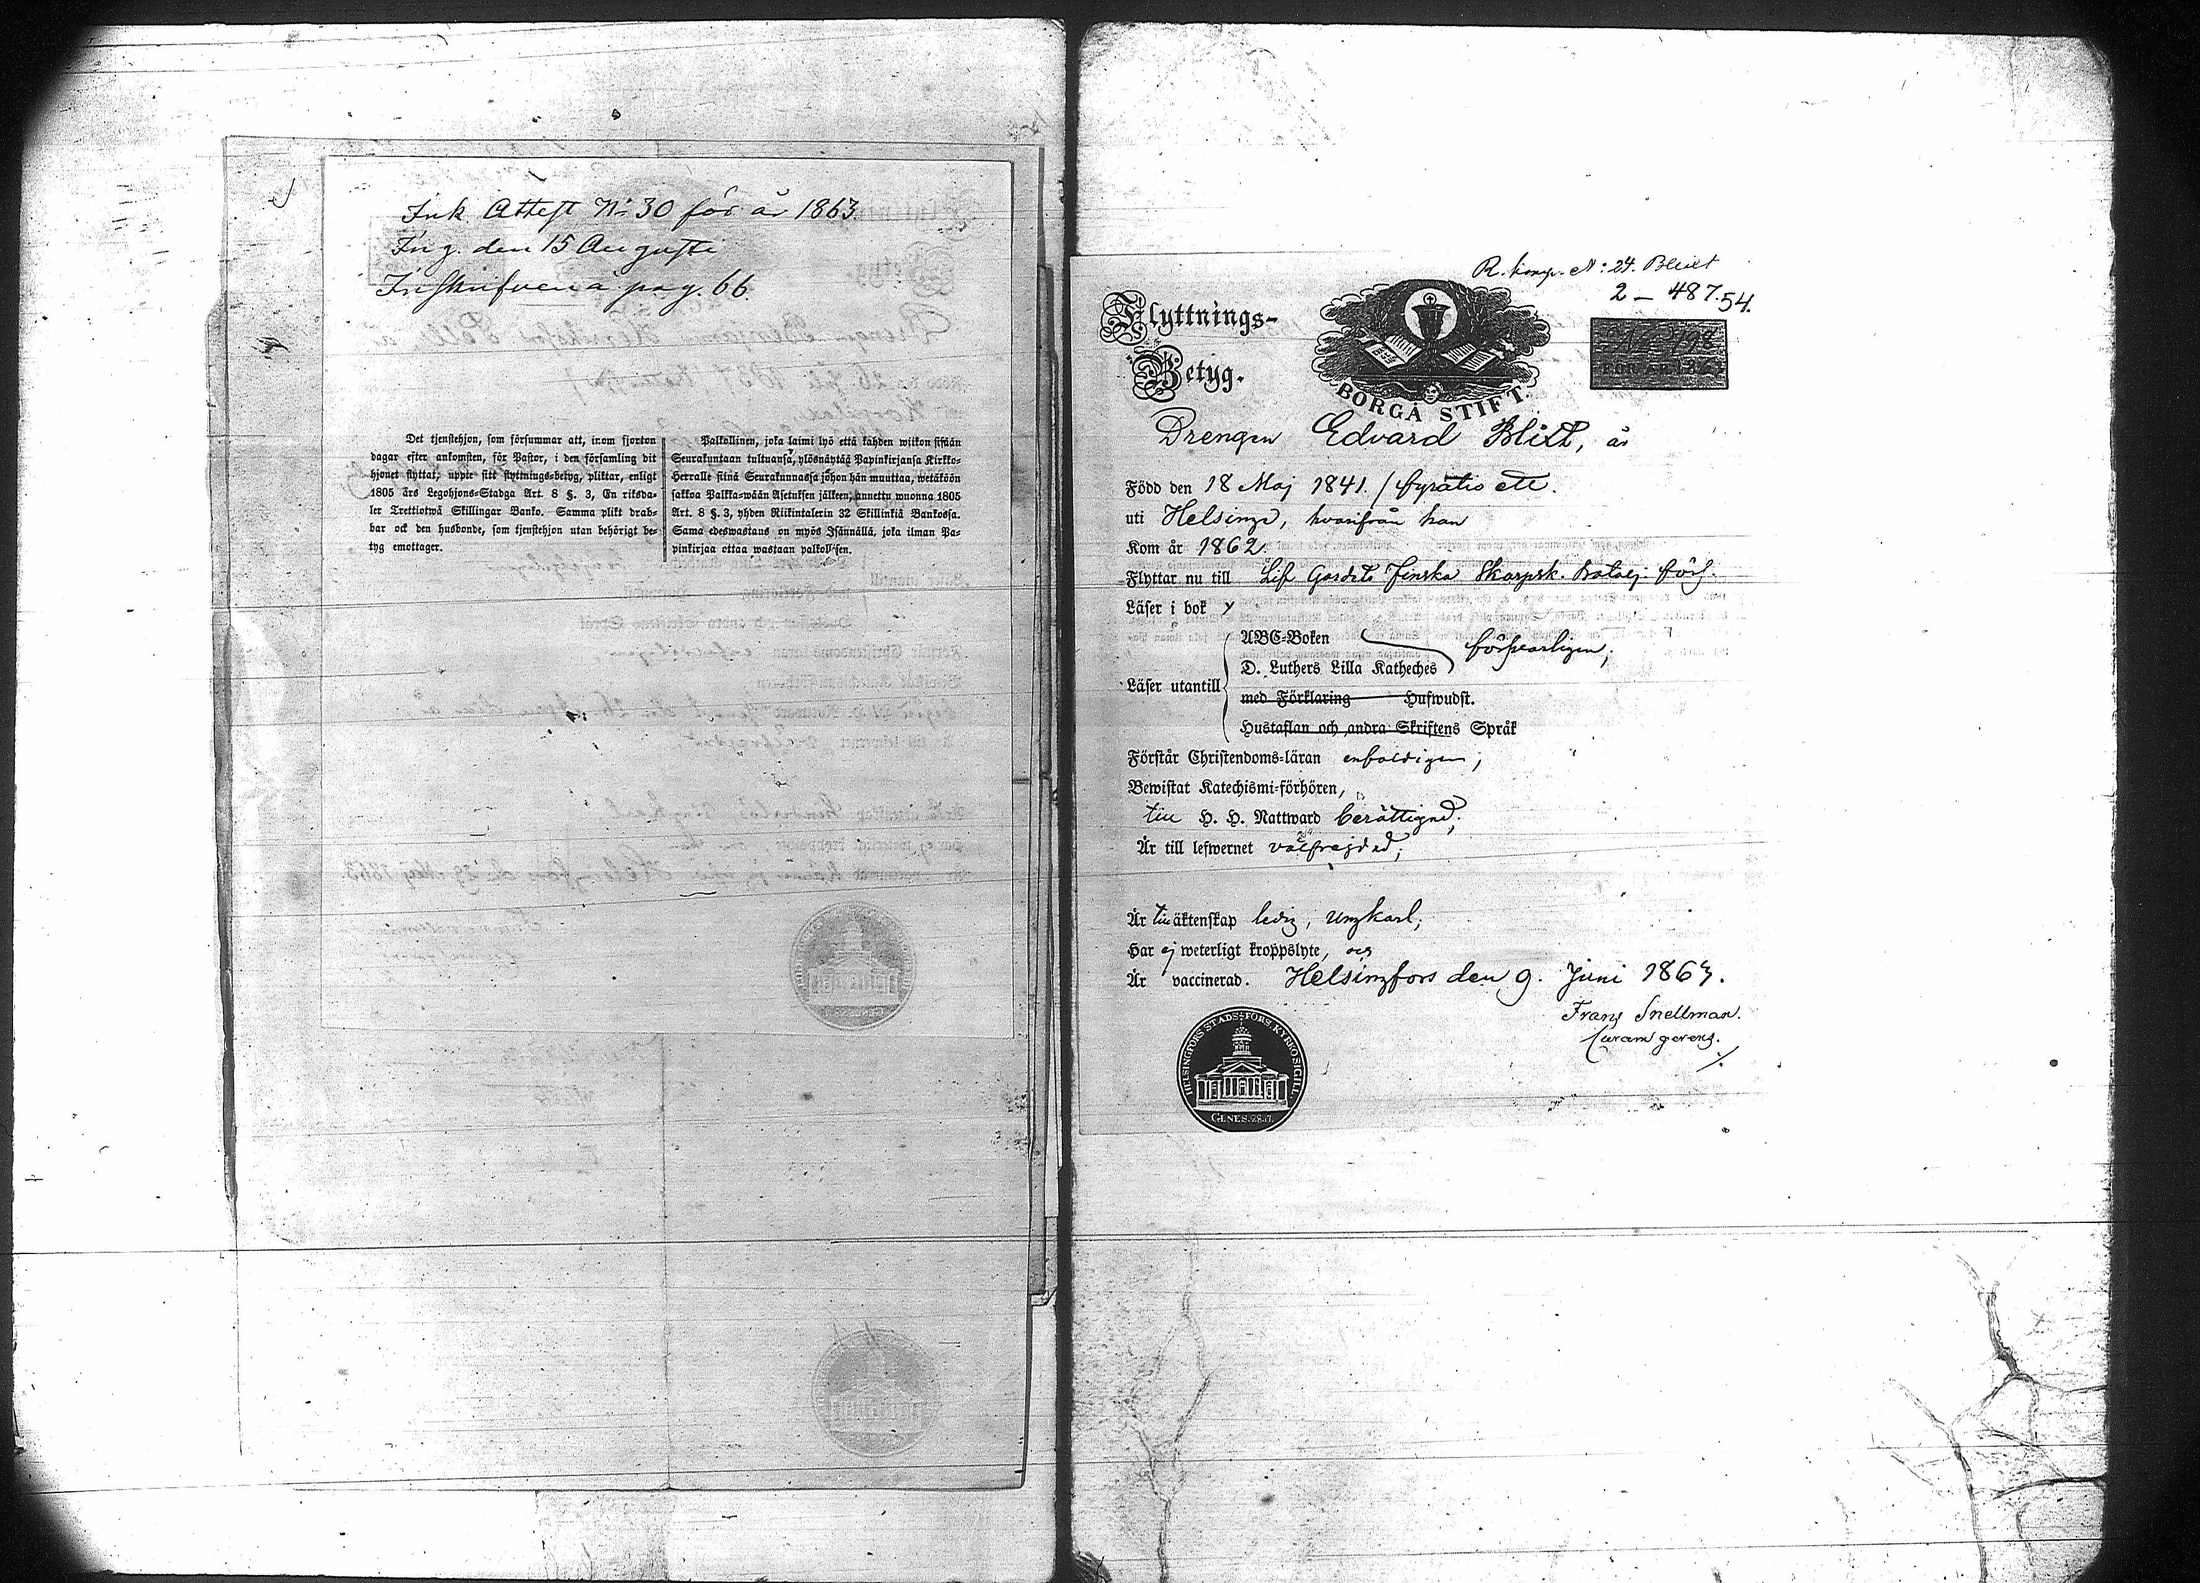 Ink Attest No 30 för år 1863
Ing. den 15 Augusti
Inskrifven å pag. 66.
Det tjenstehjon, som försummar att, inom fjorton
dagar efter ankomsten, för Pastor, i den församling dit
hjonet flyttat, uppte sitt flyttnings-betyg, pliktar, enligt
1805 års Legohjons-Stadga Art. 8 §. 3, En riksda-
ler Trettiotwå Skillingar Banko. Samma plikt drab-
bar ock den husbonde, som tjenstehjon utan behörigt be-
tyg emottager.
Palkollinen, joka laimi lyö että kahden wiikon sisään
Seurakuntaan tultuansa, ylösnäytää Papinkirjansa Kirkko-
Herralle siinä Seurakunnassa johon hän muuttaa, wetäköön
sakkoa Palkka-wään Asetuksen jälkeen, annettu wuonna 1805
Art. 8 §. 3, yhden Riikintalerin 32 Skillinkiä Bankossa.
Sama edeswastaus on myös Isännällä, joka ilman Pa-
pinkirjaa ottaa wastaan palkollisen.
R. komp. N: 24. Blixt
2 – 487.54.
Flyttnings-
Betyg.
BORGÅ STIFT.
FÖR ÅR
Drengen Edvard Blixt, är
Född den 18 Maj 1841. / fyratio ett.
uti Helsinge, hvarifrån han
Kom år 1862.
Flyttar nu till Lif Gardets Finska Skarpsk. Batalj. förs.
Läser i bok
ABC-Boken
D. Luthers Lilla Katheches
försvarligen;
Läser utantill
med Förklaring Hufwudst.
Hustaflan och andra Skriftens Språk
Förstår Christendoms-läran enfaldigen;
Bewistat Katechismi-förhören,
till H. H. Nattward berättigad;
Är till lefwernet välfrejdad;
Är till äktenskap ledig, ungkarl;
Har ej weterligt kroppslyte, och
Är vaccinerad. Helsingfors den 9. Juni 1863.
Frans Snellman.
Curam gerens.
HELSINGFORS STADS-FÖRS. KYRKOSIGILL.
GENES. 28.17.